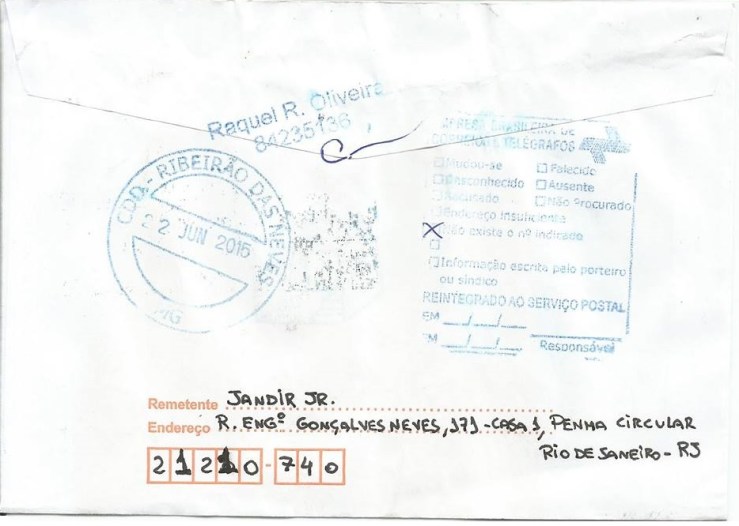 Raquel R. Oliveira
84235136
CDD - RIBEIRÃO DAS NEVES
22 JUN 2015
MG
EMPRESA BRASILEIRA DE
CORREIOS E TELÉGRAFOS
Mudou-se Falecido
Desconhecido Ausente
Recusado Não Procurado
Endereço insuficiente
X Não existe o nº indicado
Informação escrita pelo porteiro
ou síndico
REINTEGRADO AO SERVIÇO POSTAL
EM __/__/__
EM __/__/__ Responsável
Remetente JANDIR JR.
Endereço R. ENGº GONÇALVES NEVES, 171 - CASA 1, PENHA CIRCULAR
RIO DE JANEIRO - RJ
21210-740